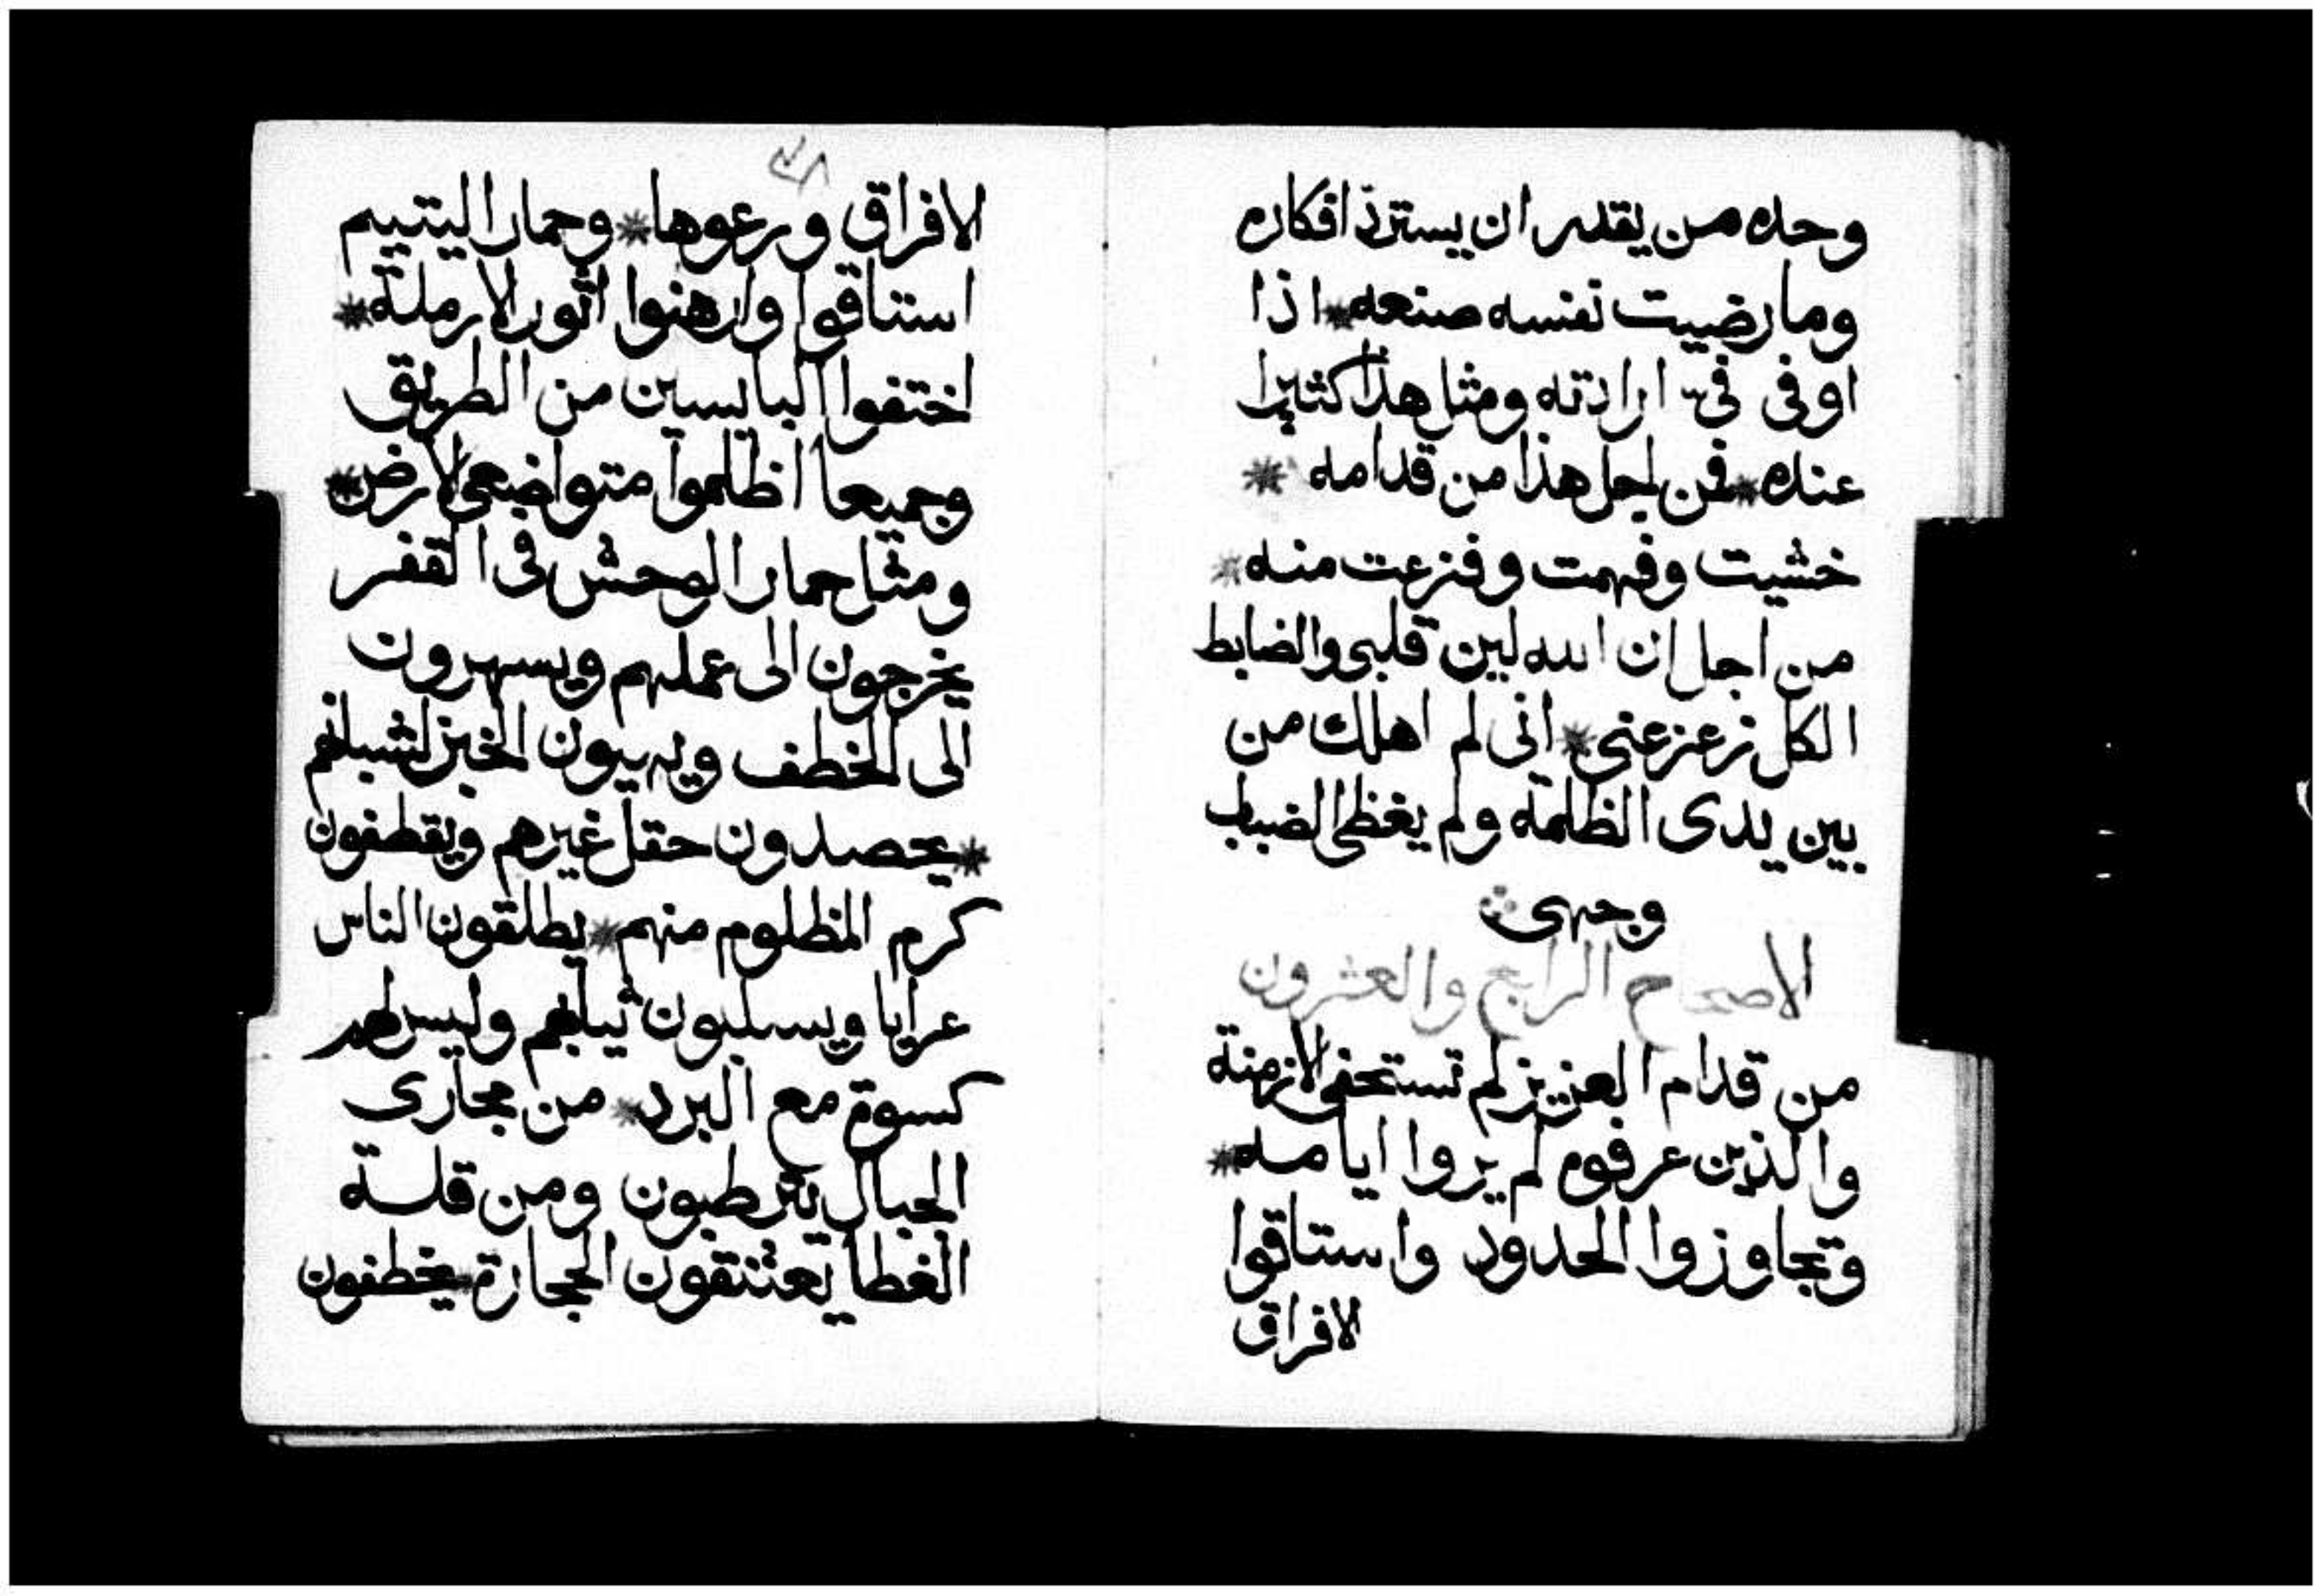 وحده من يقدر ان يسترذ افكاره
وما رضيت نفسه صنعه * اذا
اوفى فيّ ارادته ومثل هذا كثيرا
عنده * فمن اجل هذا من قدامه *
خشيت وفهمت وفزعت منه *
من اجل ان الله لين قلبي والضابط
الكل زعزعني * انى لم اهلك من
بين يدى الظلمة ولم يغظى الضباب
وجهى
الاصحاح الرابع والعشرون
من قدام العزيز لم تستخفى الازمنة
والذين عرفوه لم يروا ايامه *
وتجاوزوا الحدود واستاقوا
الافراق
الافراق ورعوها * وحمار اليتيم
استاقوا وارهنوا اثور الارملة *
اختفوا البايسين من الطريق
وجميعا اظلموا متواضعى الارض *
ومثل حمار الوحش فى القفر
يخرجون الى عملهم ويسهرون
الى الخطف ويهيون الخبز لشبانهم
* يحصدون حقل غيرهم ويقطفون
كرم المظلوم منهم * يطلقون الناس
عرايا ويسلبون ثيابهم وليس لهم
كسوة مع البرد * من مجارى
الجبال يترطبون ومن قلة
الغطا يعتنقون الحجارة * يخطفون